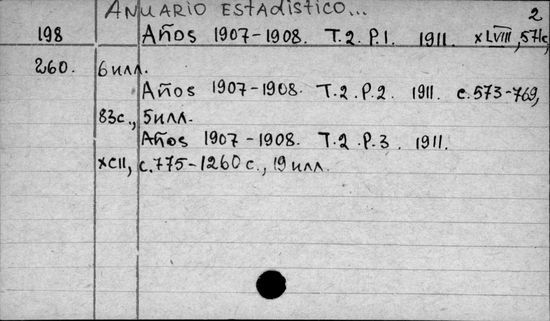 Anuario estadístico... 2
198 Años 1907-1908. T.2. P.1. 1911. XLVIII, 571c,
260. 6 илл.
Años 1907-1908. T.2. P.2. 1911. c.573-769,
83c., 5 илл.
Años 1907-1908. T.2. P.3. 1911.
XCII, c.775-1260 c., 19 илл.